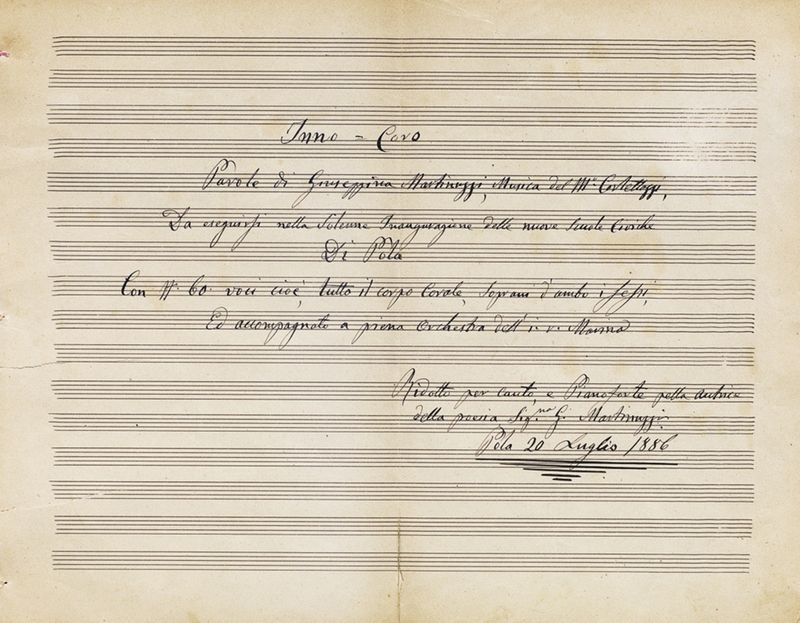 Inno = Coro
Parole di Giuseppina Martinuzzi, Musica del Mo. Cortellazzi,
Da eseguirsi nella Solenne Inaugurazione delle nuove Scuole Civiche
Di Pola
Con No. 60. voci cioè, tutto il corpo Corale, Soprani d'ambo i sessi,
Ed accompagnato a piena Orchestra dell' i. r. Marina
Ridotto per canto, e Pianoforte pella autrice
della poesia Sig.na G. Martinuzzi.
Pola 20 Luglio 1886